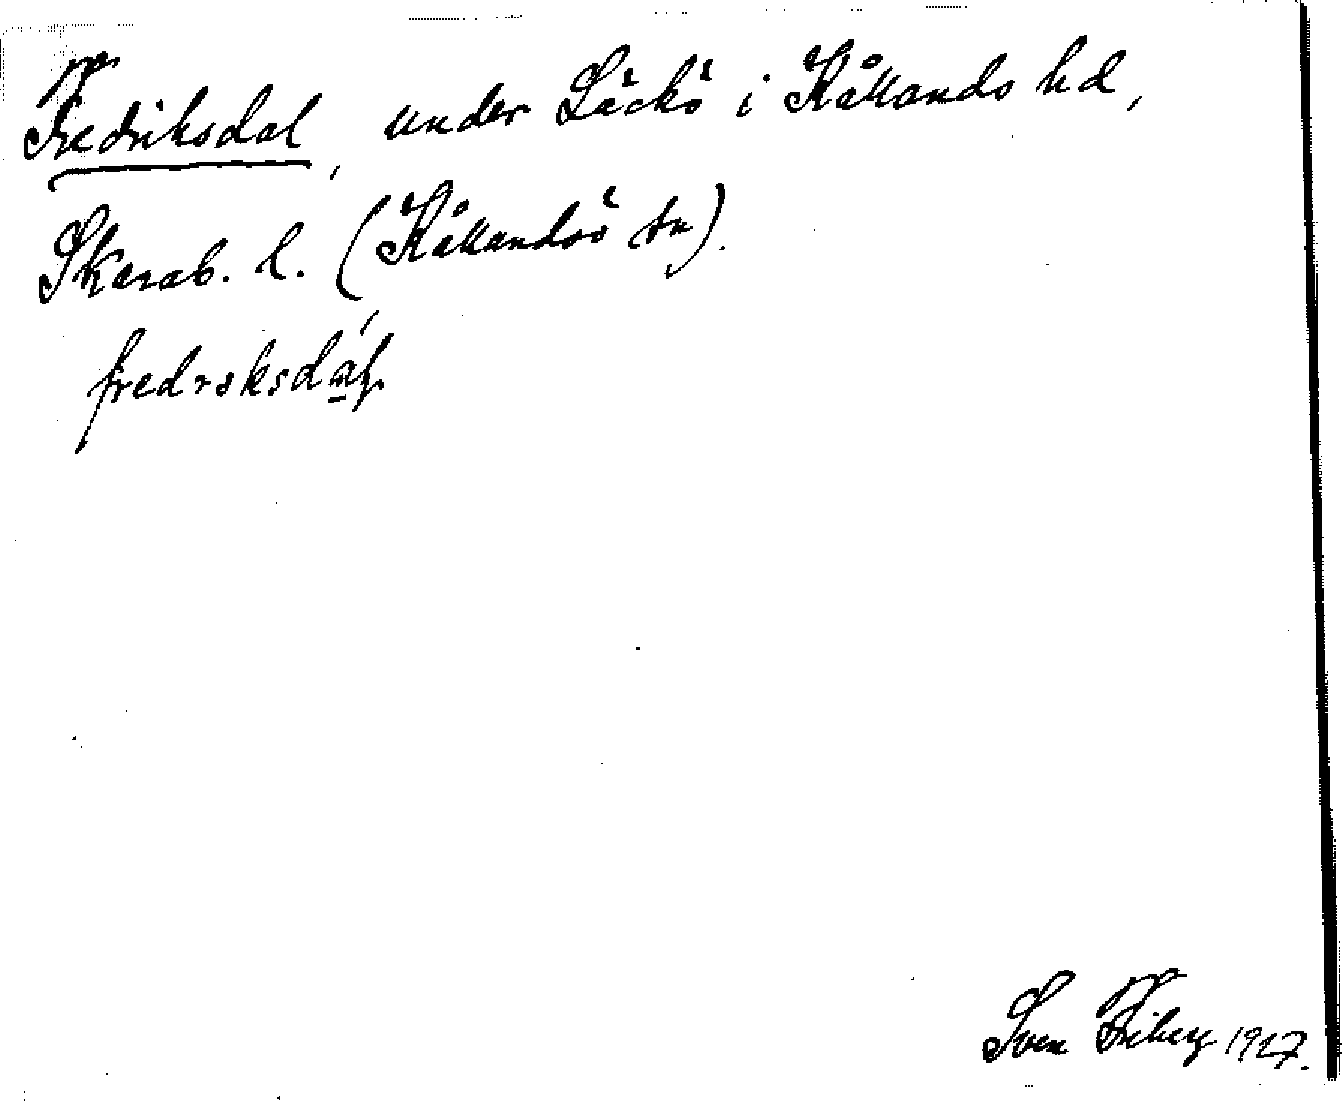 Fredriksdal, under Läckö i Kållands hd,
Skarab. l. (Kållandsö sn).
fredrsksdál
Sven Friberg 1927.